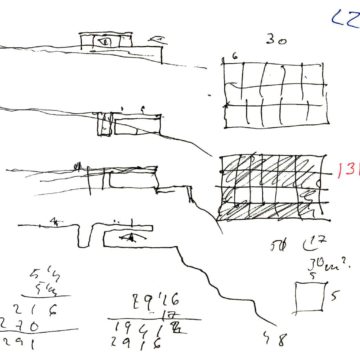 30
6
131
50 17
30 m².
5
5
5'4
5'4
216
270
291
29'16
17
1941
2916
48